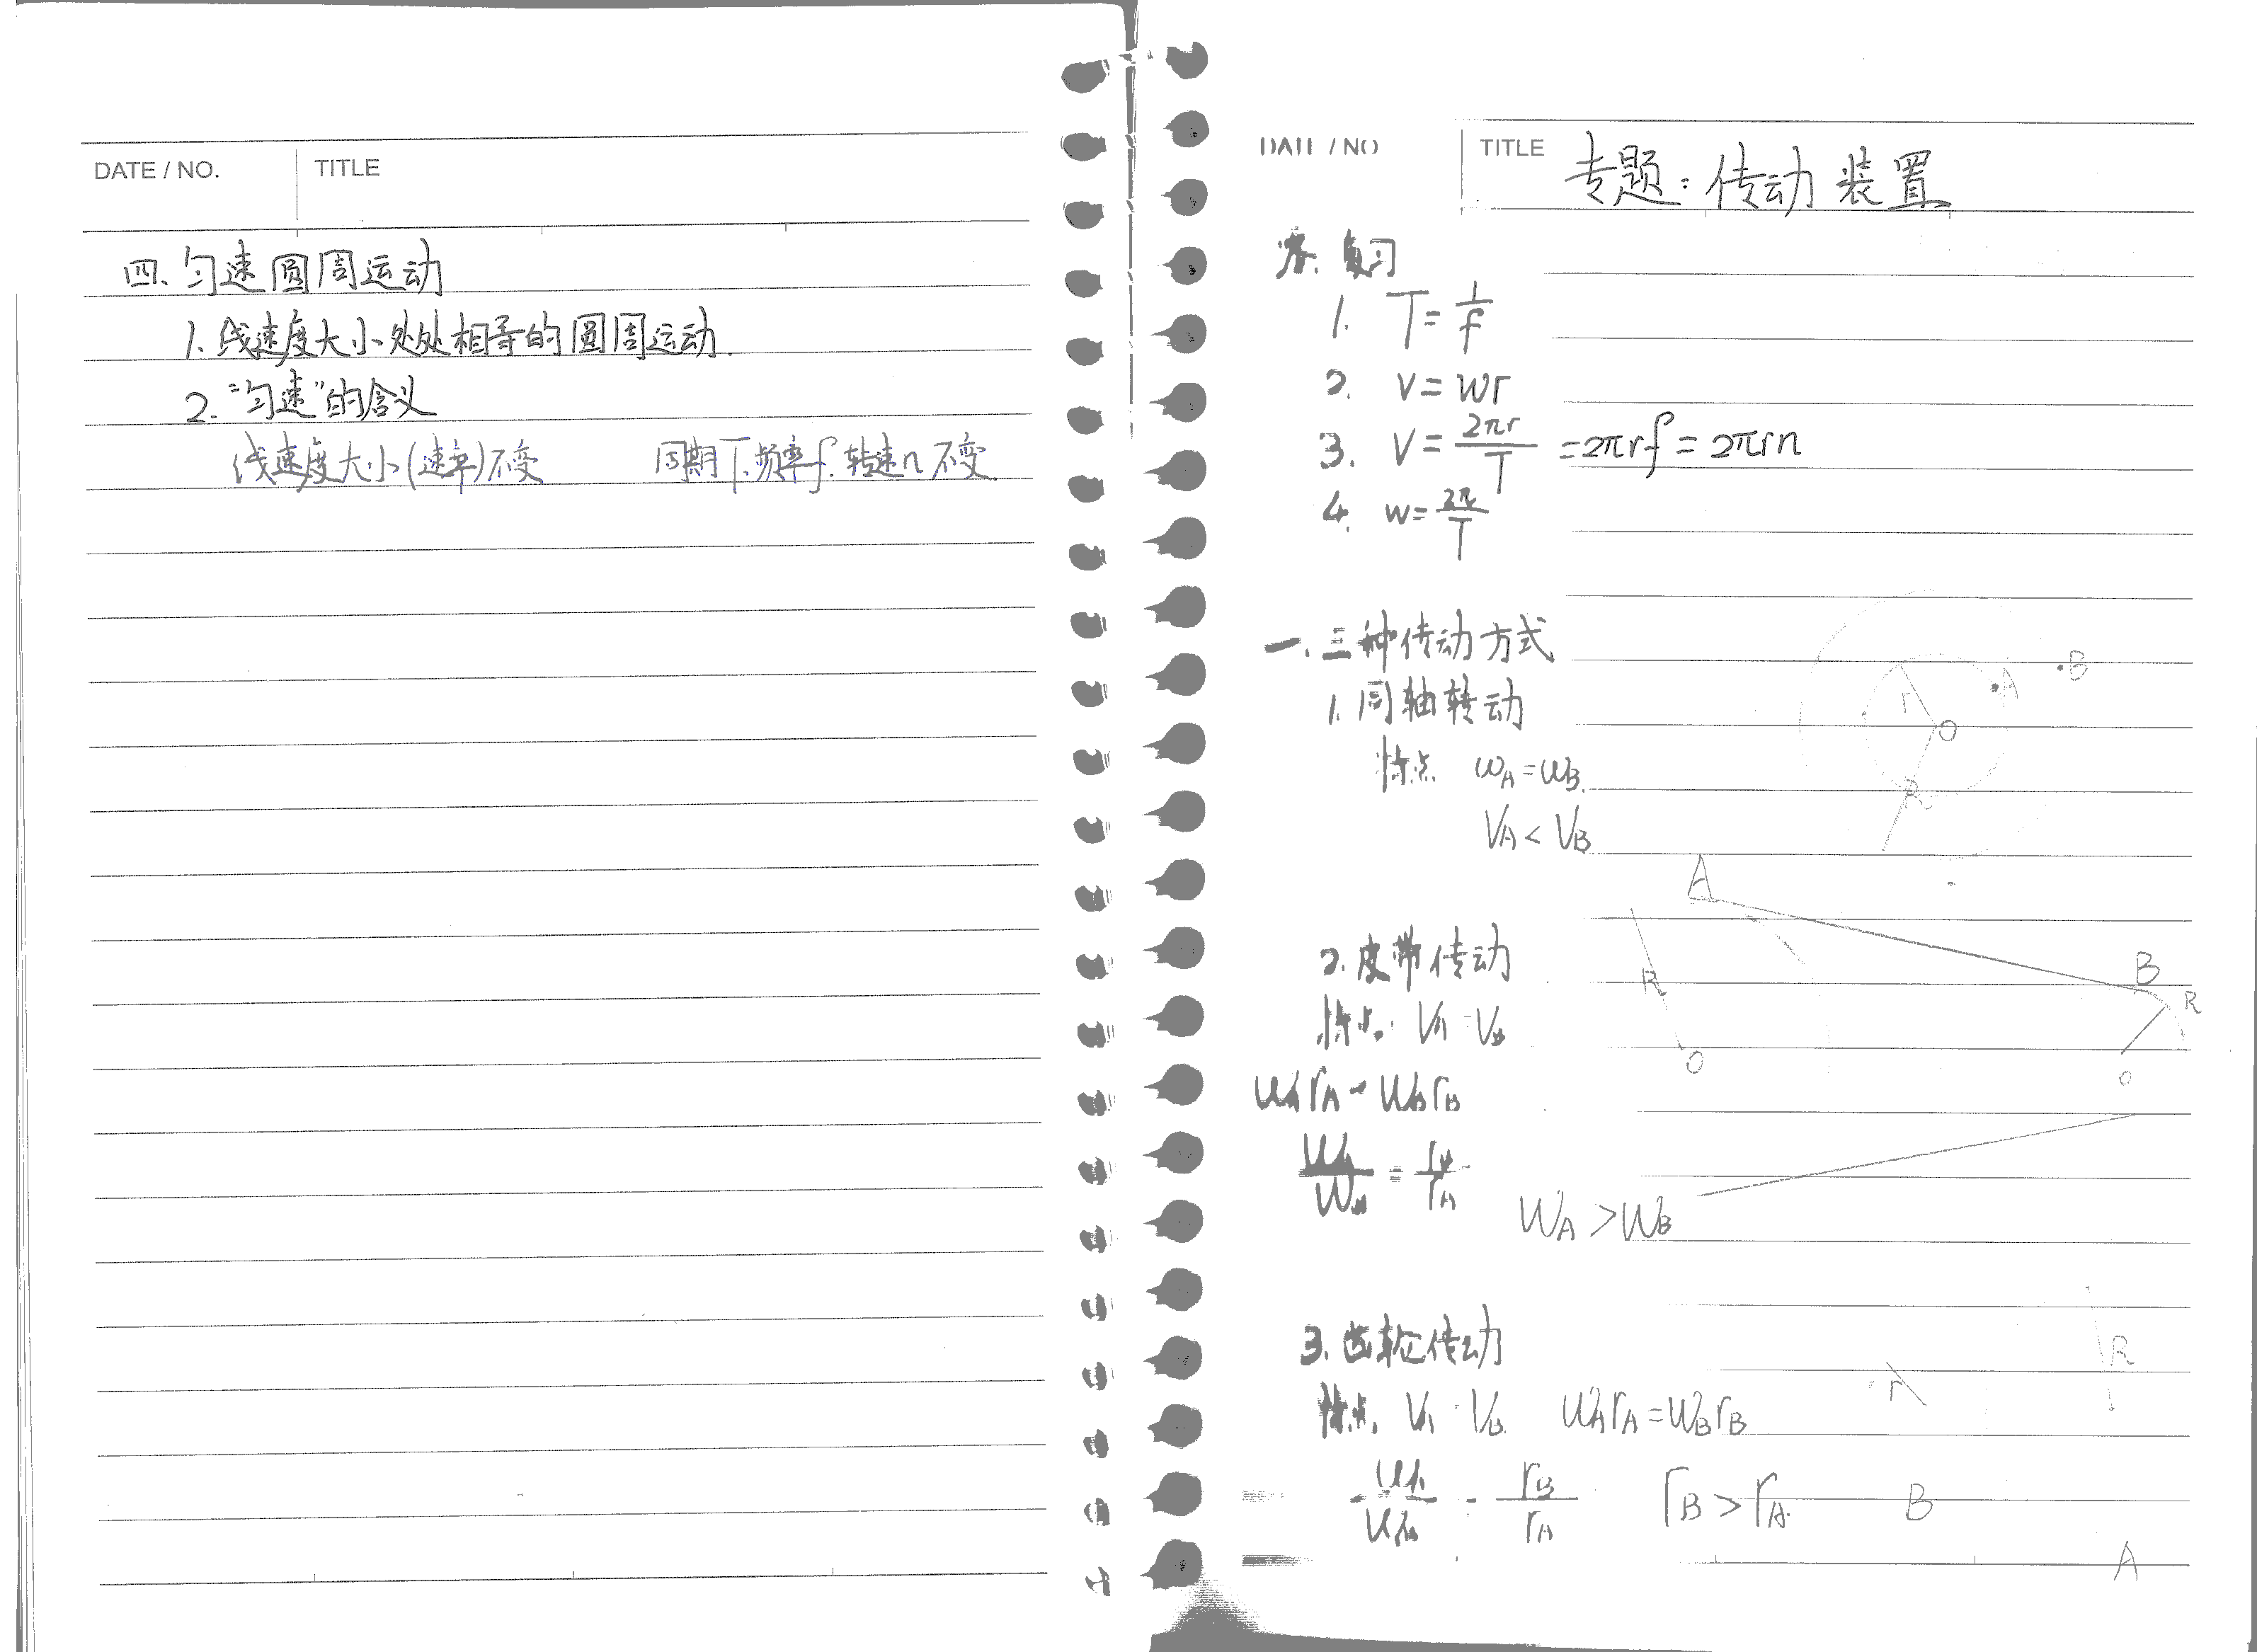 DATE / NO.
TITLE
四. 匀速圆周运动
1. 线速度大小处处相等的圆周运动.
2. "匀速"的含义
线速度大小(速率)不变 周期T.频率f.转速n不变
TITLE 专题: 传动装置
复习
1. T = 1/f
2. v = wr
3. V = 2πr/T = 2πrf = 2πrn
4. w = 2π/T
一. 三种传动方式
1. 同轴转动
特点 ωA = ωB.
VA < VB
A
B
r
O
R
A
2. 皮带传动
B
R
R
特点. VA = VB
O
o
WArA = WBrB
WA/WB = rB/rA
WA > WB
3. 齿轮传动
R
r
特点. VA = VB WArA = WBrB
WA/WB = rB/rA rB > rA. B
A